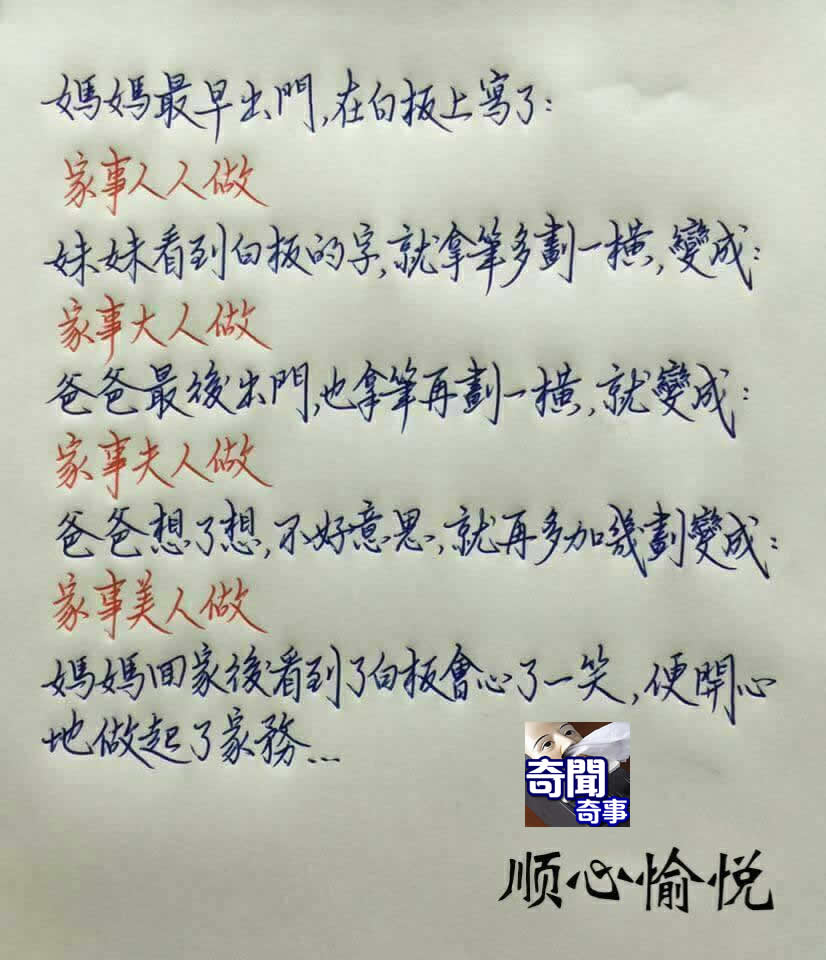 媽媽最早出門,在白板上寫了:
家事人人做
妹妹看到白板的字,就拿筆多劃一橫,變成:
家事大人做
爸爸最後出門,也拿筆再劃一橫,就變成:
家事夫人做
爸爸想了想,不好意思,就再多加幾劃變成:
家事美人做
媽媽回家後看到了白板會心了一笑,便開心
地做起了家務...
奇聞
奇事
顺心愉悦